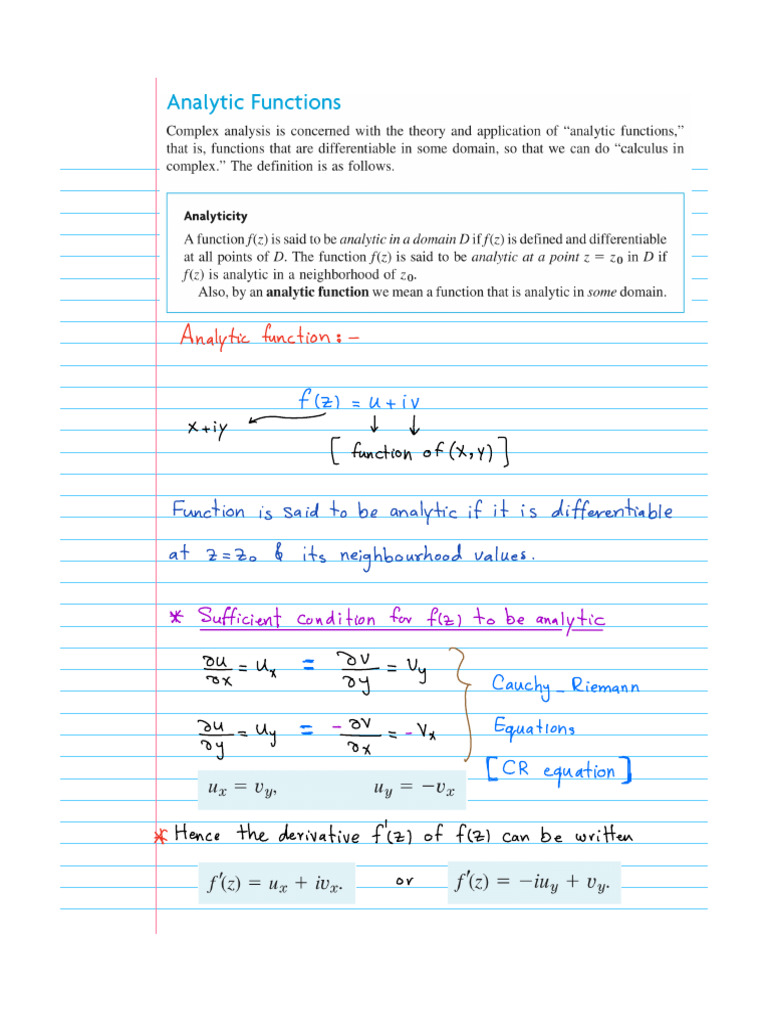 Analytic Functions
Complex analysis is concerned with the theory and application of “analytic functions,”
that is, functions that are differentiable in some domain, so that we can do “calculus in
complex.” The definition is as follows.
Analyticity
A function f(z) is said to be analytic in a domain D if f(z) is defined and differentiable
at all points of D. The function f(z) is said to be analytic at a point z = z₀ in D if
f(z) is analytic in a neighborhood of z₀.
Also, by an analytic function we mean a function that is analytic in some domain.
Analytic function:-
f(z) = u + iv
x+iy
[ function of (x, y) ]
Function is said to be analytic if it is differentiable
at z=z₀ & its neighbourhood values.
* Sufficient condition for f(z) to be analytic
∂u/∂x = uₓ = ∂v/∂y = v_y
Cauchy-Riemann
∂u/∂y = u_y = -∂v/∂x = -vₓ
Equations
[CR equation]
uₓ = v_y, u_y = −vₓ
* Hence the derivative f'(z) of f(z) can be written
f′(z) = uₓ + ivₓ. or f′(z) = −iu_y + v_y.